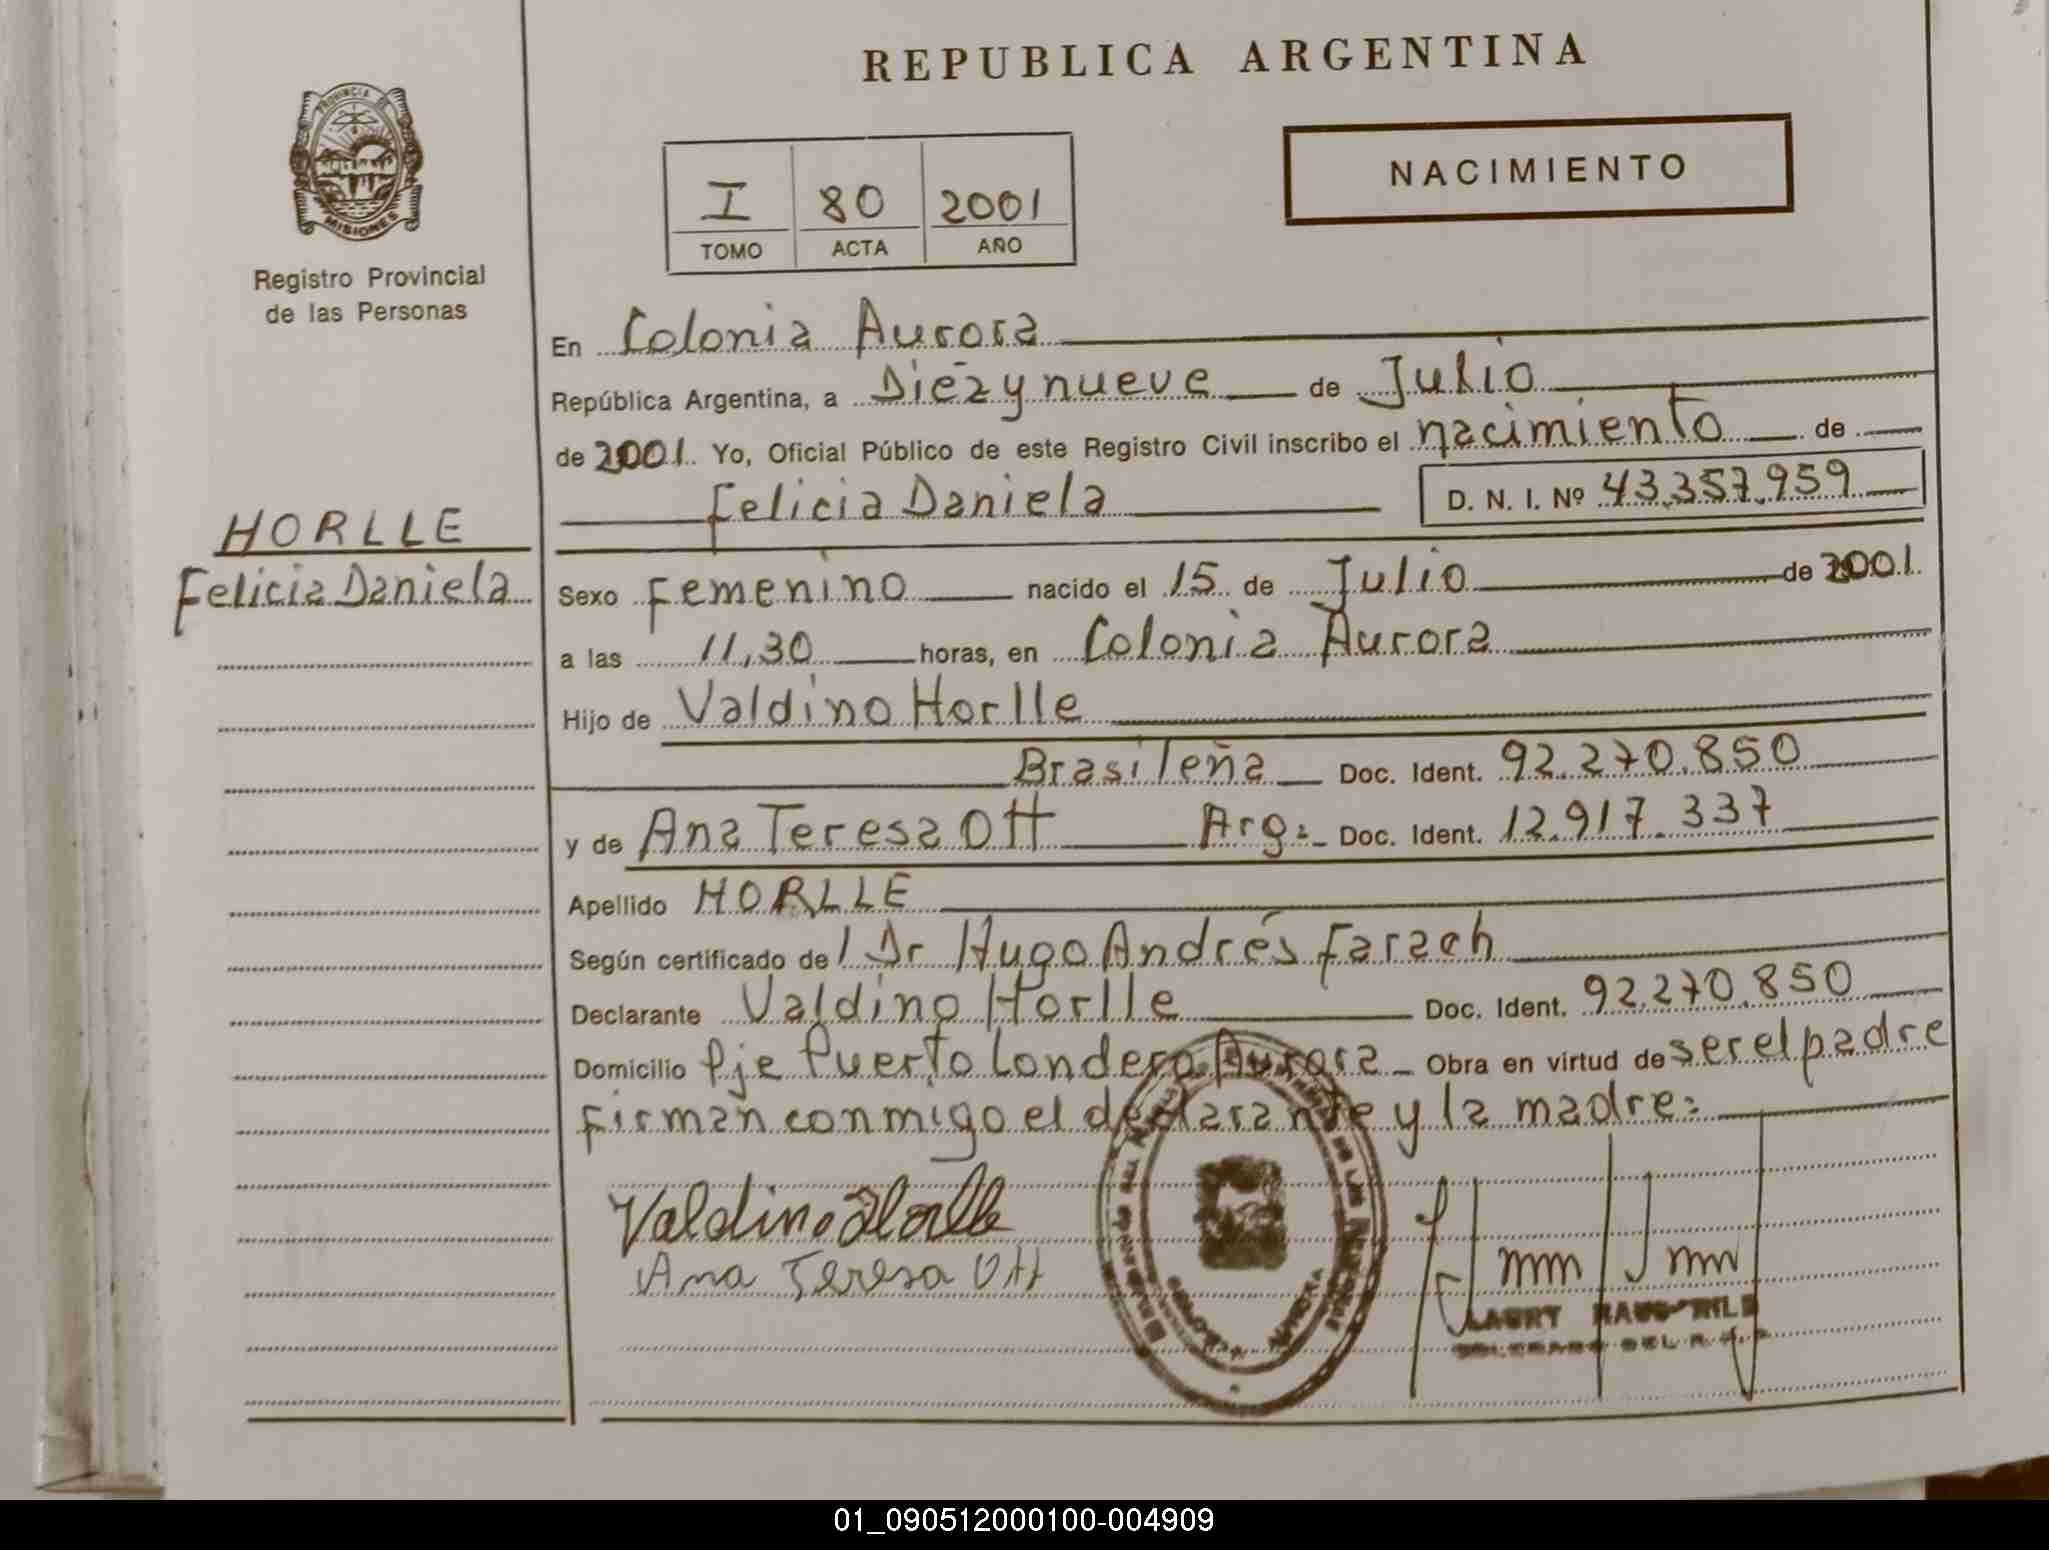 REPUBLICA ARGENTINA
PROVINCIA DE
MISIONES
Registro Provincial
de las Personas
I 80 2001
TOMO ACTA AÑO
NACIMIENTO
En Colonia Aurora
República Argentina, a Diez y nueve de Julio
de 2001. Yo, Oficial Público de este Registro Civil inscribo el nacimiento de
Felicia Daniela D. N. I. Nº 43.357.959
HORLLE
Felicia Daniela
Sexo Femenino nacido el 15 de Julio de 2001.
a las 11,30 horas, en Colonia Aurora
Hijo de Valdino Horlle
Brasileña Doc. Ident. 92.270.850
y de Ana Teresa Ott Arg: Doc. Ident. 12.917.337
Apellido HORLLE
Según certificado del Dr Hugo Andrés Farach
Declarante Valdino Horlle Doc. Ident. 92.270.850
Domicilio Pje Puerto Londero Aurora Obra en virtud de ser el padre
Firman conmigo el declarante y la madre:
Valdino Horlle
Ana Teresa Ott
AURORA
01_090512000100-004909